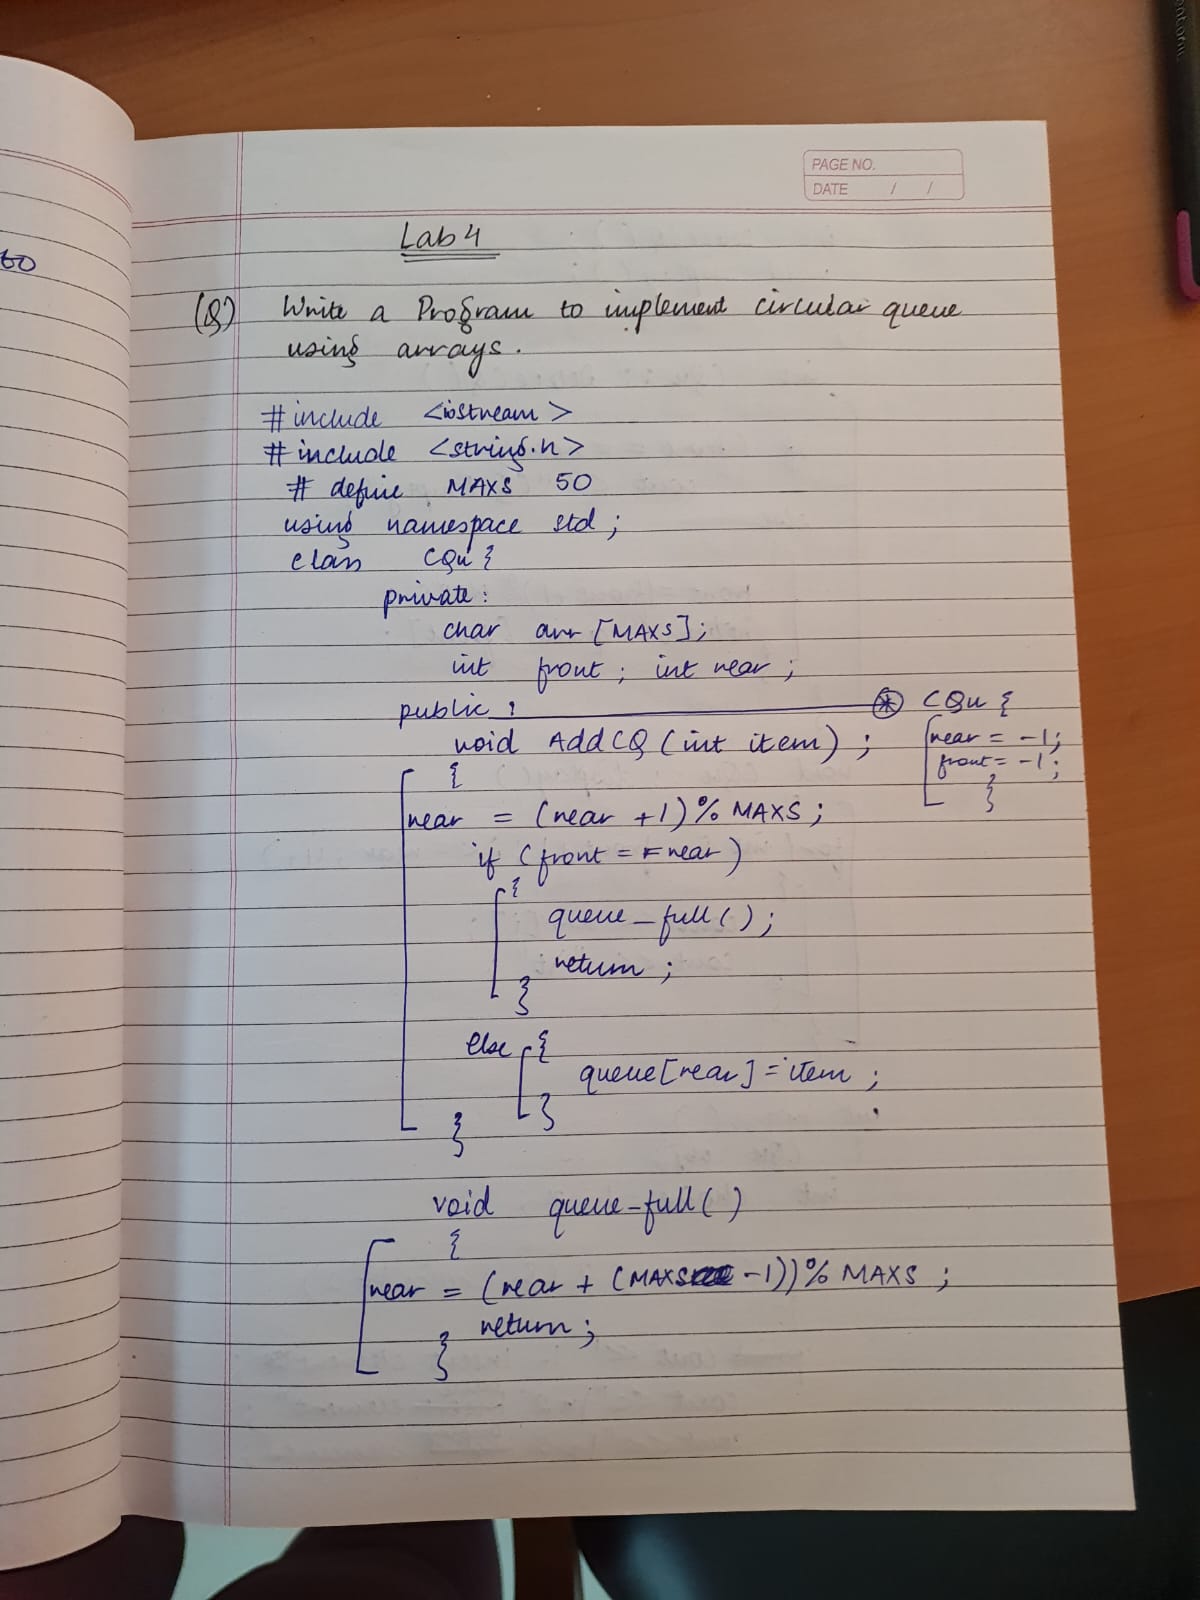 PAGE NO.
DATE / /
Lab 4
(Q) Write a Program to implement circular queue
using arrays.
# include <iostream>
# include <string.h>
# define MAXS 50
using namespace std ;
class CQu {
private :
char arr [MAXS] ;
int front ; int rear ;
public : ⊛ CQu {
rear = -1 ;
front = -1 ;
}
void AddCQ (int item) ;
{
rear = (rear +1) % MAXS ;
if (front == rear)
{
queue_full() ;
return ;
}
else {
queue[rear] = item ;
}
}
void queue_full()
{
rear = (rear + (MAXS -1)) % MAXS ;
return ;
}
to